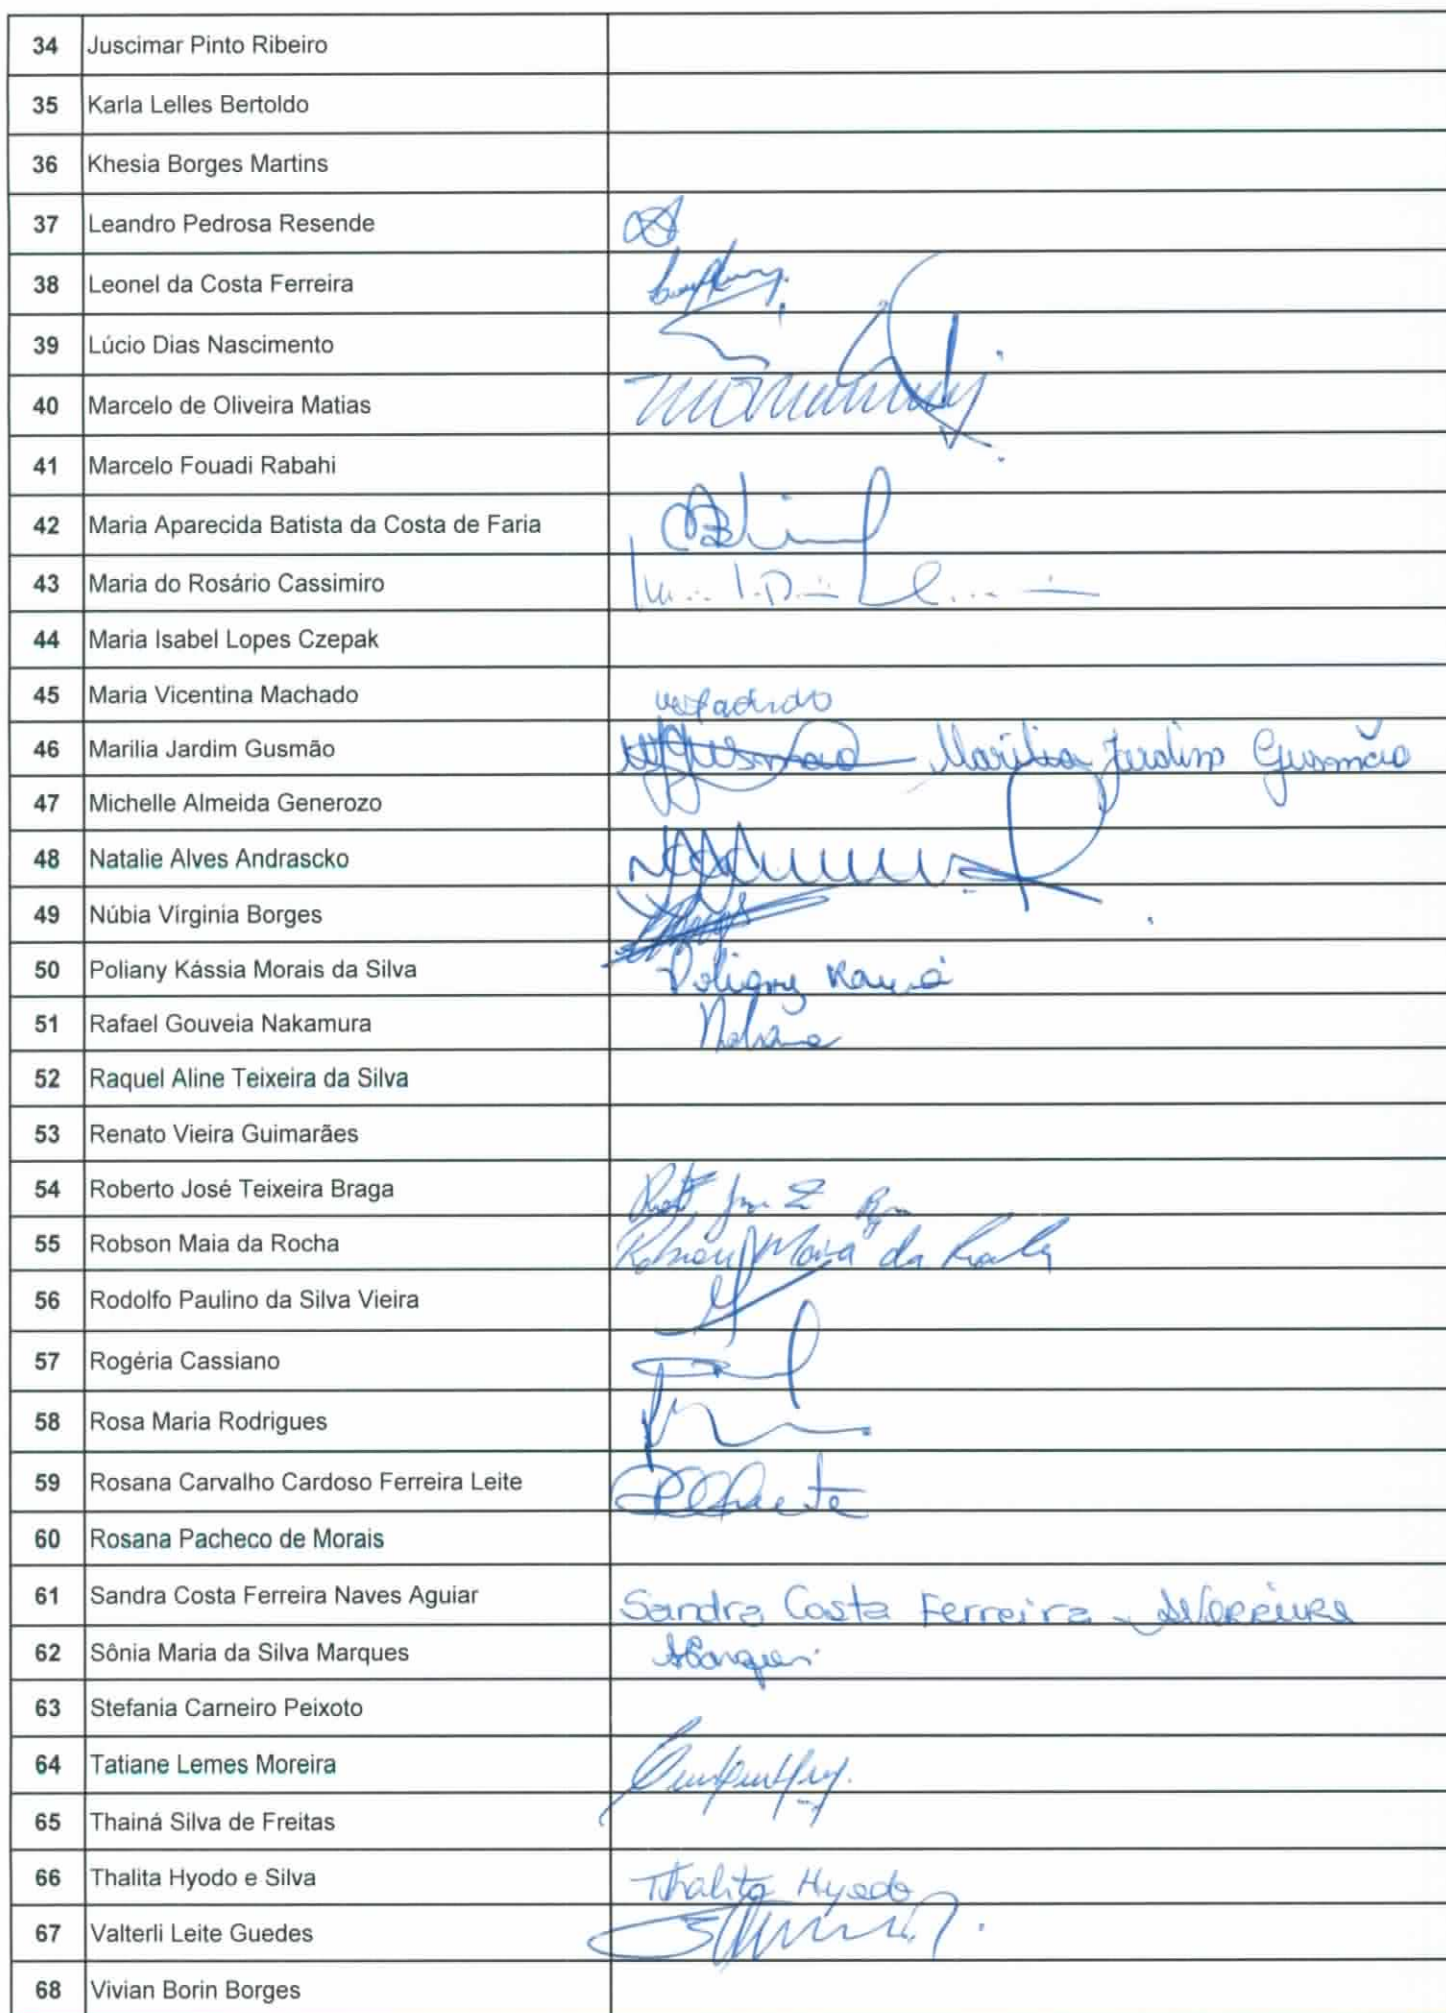 34 Juscimar Pinto Ribeiro
35 Karla Lelles Bertoldo
36 Khesia Borges Martins
37 Leandro Pedrosa Resende
38 Leonel da Costa Ferreira
39 Lúcio Dias Nascimento
40 Marcelo de Oliveira Matias
41 Marcelo Fouadi Rabahi
42 Maria Aparecida Batista da Costa de Faria
43 Maria do Rosário Cassimiro
44 Maria Isabel Lopes Czepak
45 Maria Vicentina Machado
46 Marilia Jardim Gusmão Marilia Jardim Gusmão
47 Michelle Almeida Generozo
48 Natalie Alves Andrascko
49 Núbia Virginia Borges
50 Poliany Kássia Morais da Silva Poliany
51 Rafael Gouveia Nakamura
52 Raquel Aline Teixeira da Silva
53 Renato Vieira Guimarães
54 Roberto José Teixeira Braga
55 Robson Maia da Rocha Robson Maia da Rocha
56 Rodolfo Paulino da Silva Vieira
57 Rogéria Cassiano
58 Rosa Maria Rodrigues
59 Rosana Carvalho Cardoso Ferreira Leite
60 Rosana Pacheco de Morais
61 Sandra Costa Ferreira Naves Aguiar Sandra Costa Ferreira
62 Sônia Maria da Silva Marques
63 Stefania Carneiro Peixoto
64 Tatiane Lemes Moreira
65 Thainá Silva de Freitas
66 Thalita Hyodo e Silva Thalita Hyodo
67 Valterli Leite Guedes
68 Vivian Borin Borges